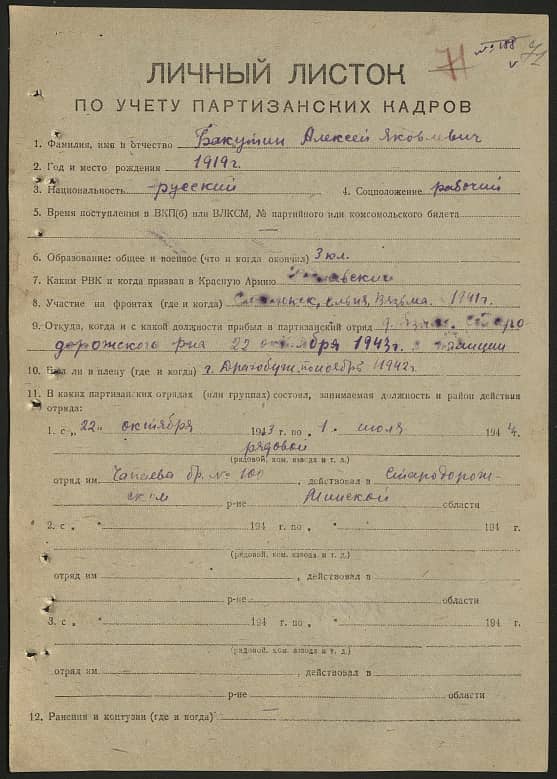 71 № 188
v 72
ЛИЧНЫЙ ЛИСТОК
ПО УЧЕТУ ПАРТИЗАНСКИХ КАДРОВ
1. Фамилия, имя и отчество Бакутин Алексей Яковлевич
2. Год и место рождения 1919 г.
3. Национальность русский 4. Соцположение рабочий
5. Время поступления в ВКП(б) или ВЛКСМ, № партийного или комсомольского билета
—
6. Образование: общее и военное (что и когда окончил) 3 кл.
7. Каким РВК и когда призван в Красную Армию
8. Участие на фронтах (где и когда) Смоленск, Ельня, Вязьма. 1941 г.
9. Откуда, когда и с какой должности прибыл в партизанский отряд д. Старо
дорожского р-на 22 октября 1943 г. полиции
10. Был ли в плену (где и когда) г. Дрогобуж, по ноябрь 1942 г.
11. В каких партизанских отрядах (или группах) состоял, занимаемая должность и район действия
отряда:
1. с „22„ октября 1943 г. по „1„ июля 1944 г.
рядовой
(рядовой, ком. взвода и т. д.)
отряд им Чапаева бр. № 100, действовал в Стародорож-
ском р-не Минской области
2. с „ “ 194 г. по „ “ 194 г.
(рядовой, ком. взвода и т. д.)
отряд им , действовал в
р-не области
3. с „ “ 194 г. по „ “ 194 г.
(рядовой, ком. взвода и т. д.)
отряд им , действовал в
р-не области
12. Ранения и контузии (где и когда)